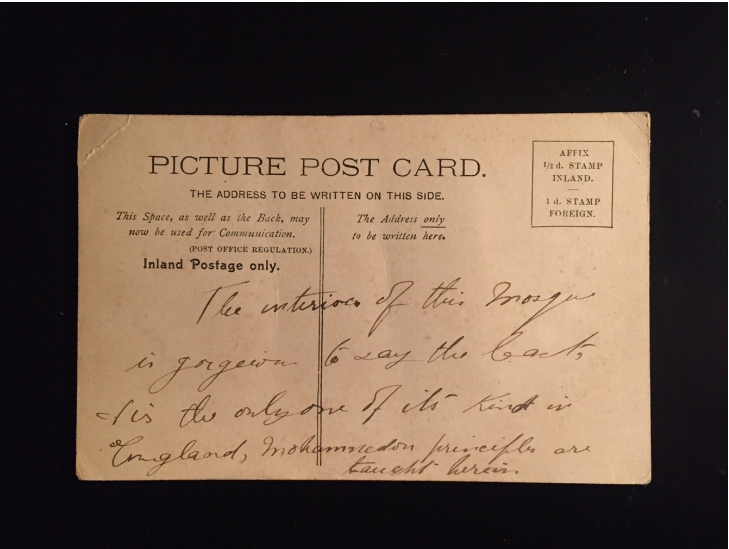 PICTURE POST CARD.
THE ADDRESS TO BE WRITTEN ON THIS SIDE.
This Space, as well as the Back, may
now be used for Communication.
(POST OFFICE REGULATION.)
Inland Postage only.
The Address only
to be written here.
AFFIX
1/2 d. STAMP
INLAND.
1 d. STAMP
FOREIGN.
The interior of this Mosque
is gorgeous to say the least,
& is the only one of its kind in
England, Mohammedon principles are
taught herein